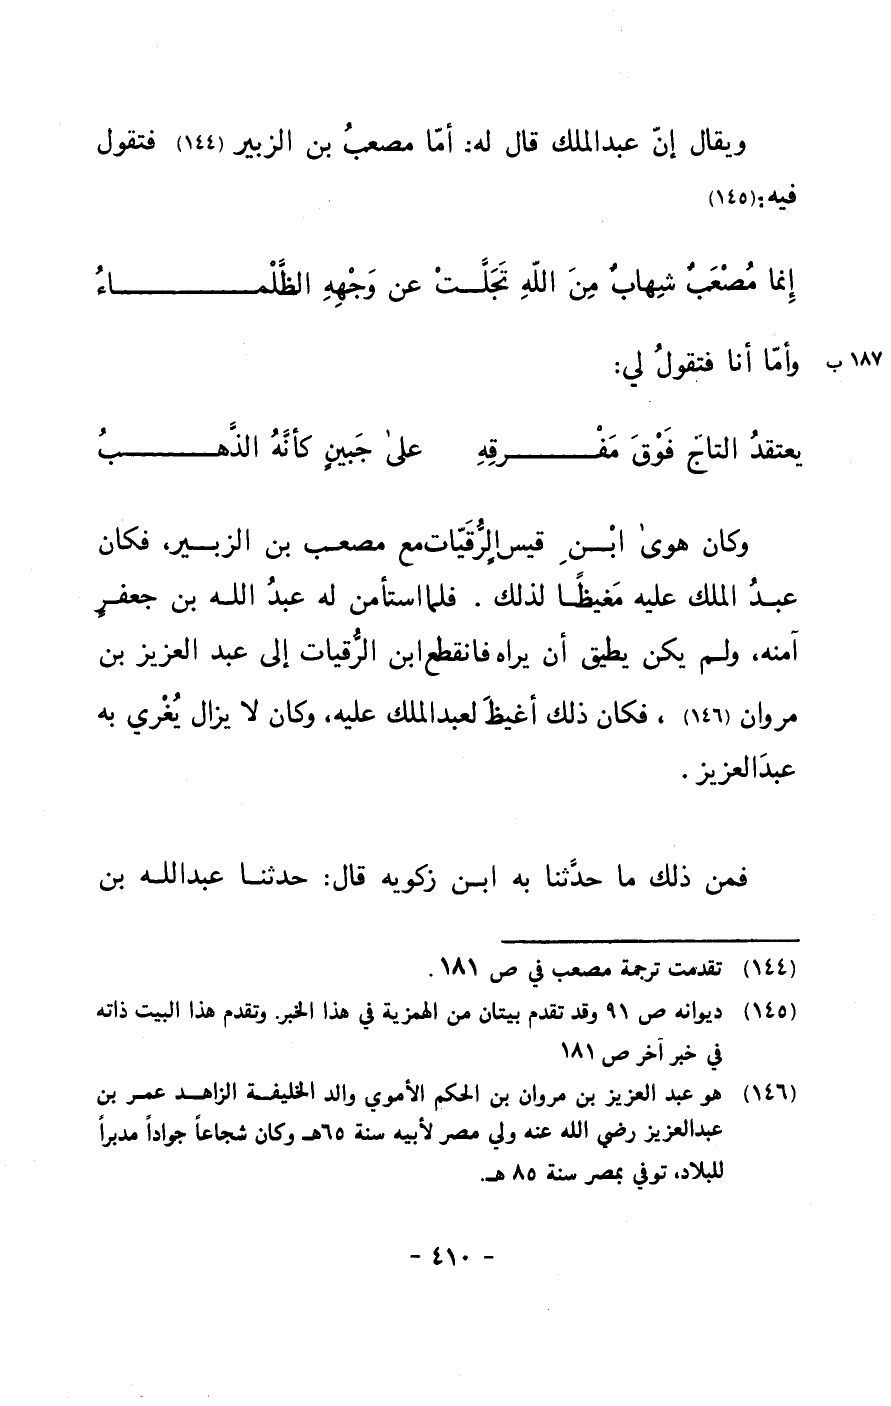 ويقال إنّ عبدالملك قال له: أمّا مصعبُ بن الزبير (١٤٤) فتقول
فيه:(١٤٥)
إنما مُصْعَبٌ شهابٌ مِنَ اللّهِ تَجَلَّتْ عن وَجْهِهِ الظَّلْمـاءُ
وأمّا أنا فتقولُ لي:
١٨٧ ب
يعتقدُ التاجَ فَوْقَ مَفْـرقِهِ على جَبينٍ كأنَّهُ الذَّهـبُ
وكان هوى ابْـن قيس الرُّقَيّات مع مصعـب بن الزبـير، فكان
عبـدُ الملك عليه مَغيظًـا لذلك . فلما استأمن له عبدُ اللـه بن جعفـرٍ
آمنه، ولـم يكن يطيق أن يراه فانقطع ابن الرُّقيات إلى عبد العزيز بن
مروان (١٤٦) ، فكان ذلك أغيظَ لعبدالملك عليه، وكان لا يزال يُغْري به
عبدَالعزيز .
فمن ذلك ما حدَّثنا به ابـن زكويه قال: حدثنـا عبداللـه بن
(١٤٤) تقدمت ترجمة مصعب في ص ١٨١ .
(١٤٥) ديوانه ص ٩١ وقد تقدم بيتان من الهمزية في هذا الخبر. وتقدم هذا البيت ذاته
في خبر آخر ص ١٨١
(١٤٦) هو عبد العزيز بن مروان بن الحكم الأموي والد الخليفـة الزاهـد عمـر بن
عبدالعزيز رضي الله عنه ولي مصر لأبيه سنة ٦٥هـ وكان شجاعاً جواداً مدبراً
للبلاد، توفي بمصر سنة ٨٥ هـ.
- ٤١٠ -